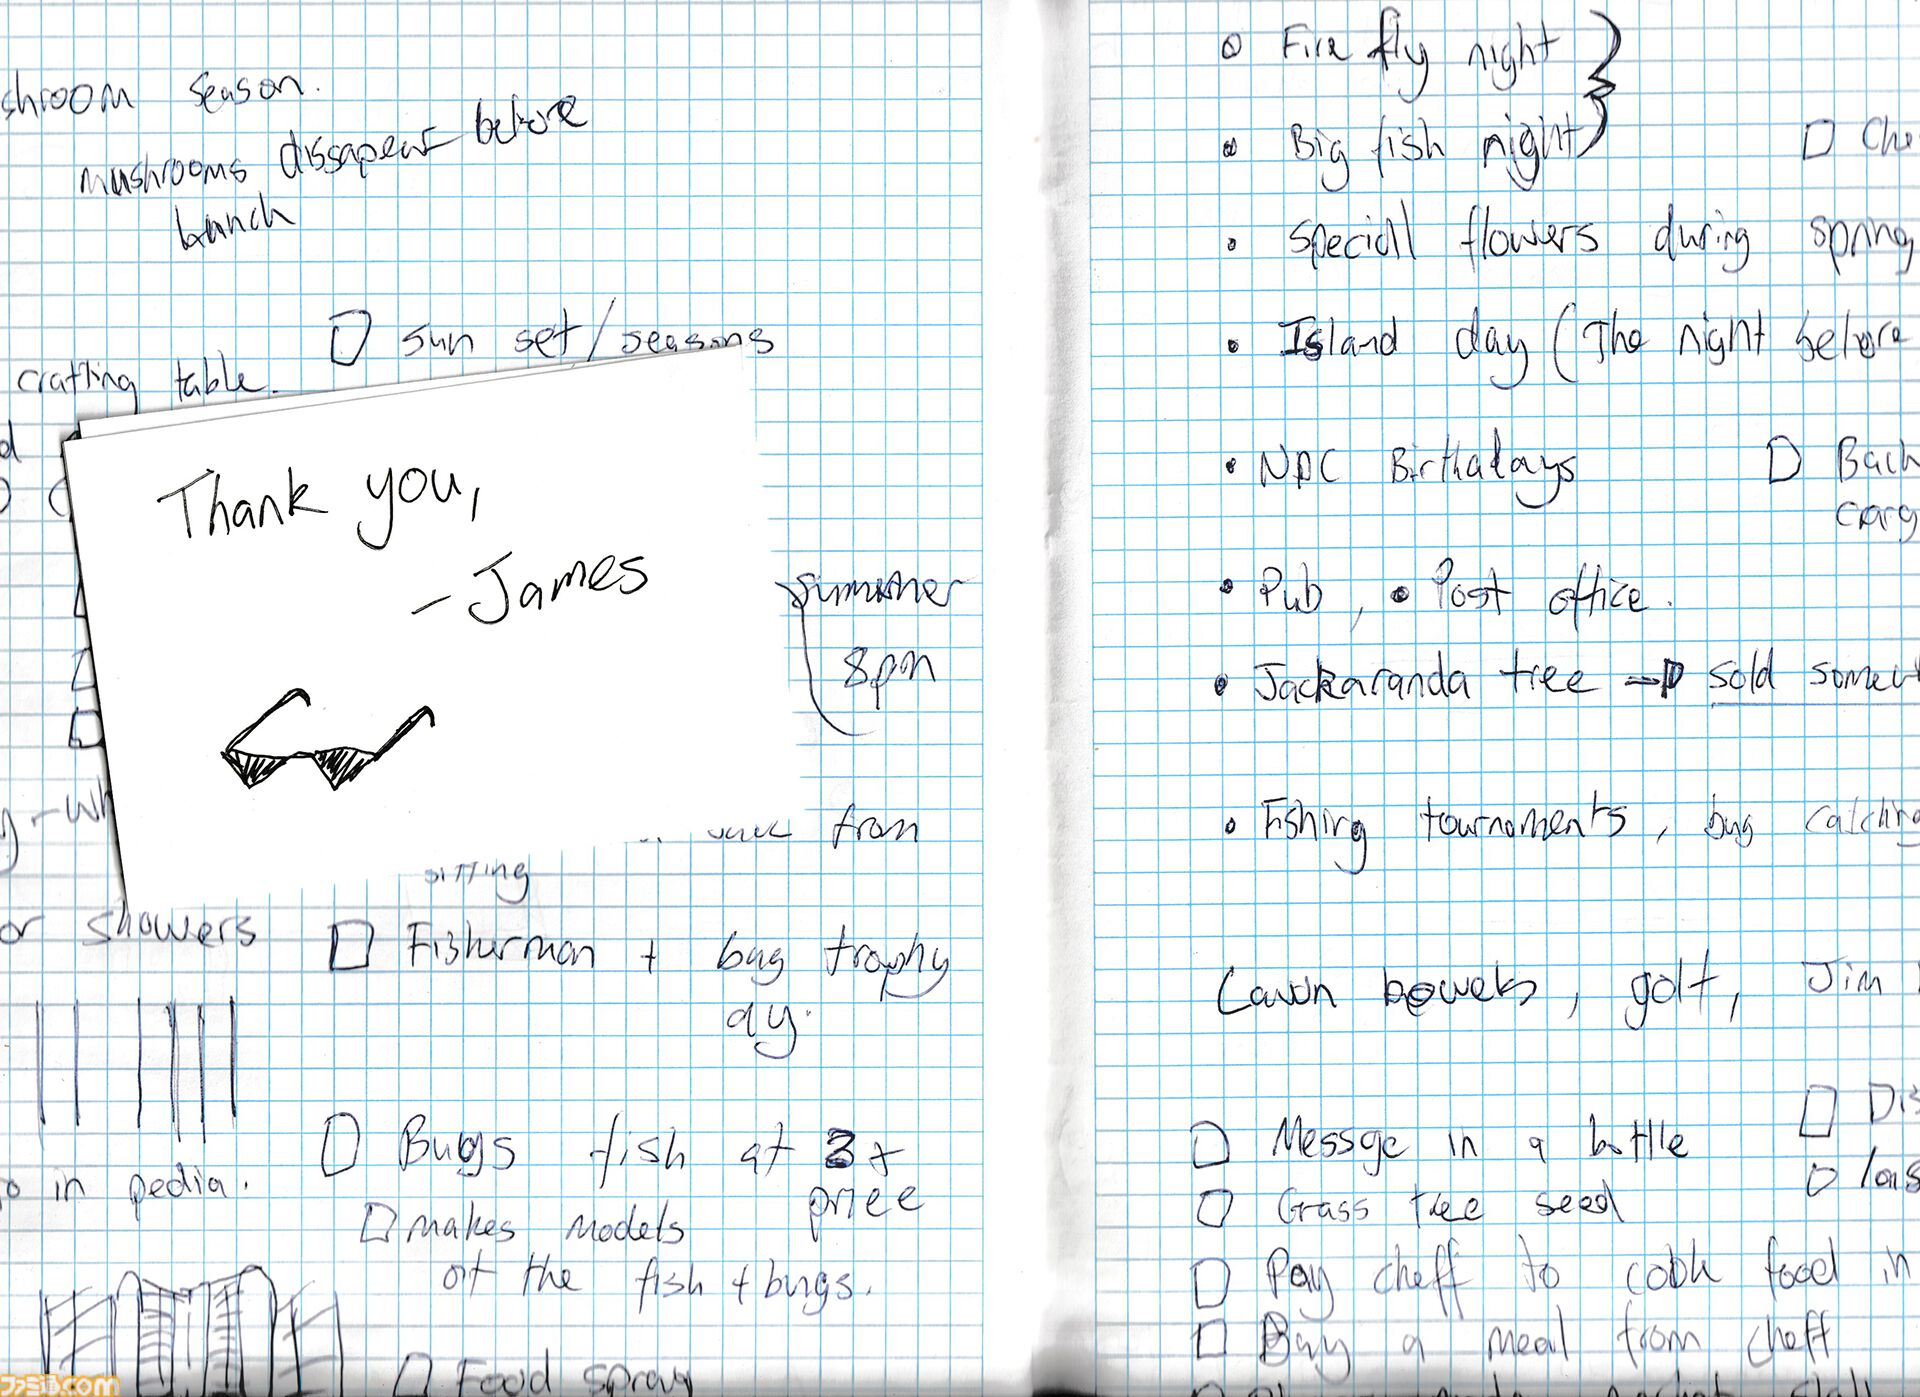 shroom season.
mushrooms dissapear before
bunch
sun set/seasons
crafting table.
Thank you,
- James
summer
8pm
from
sitting
or showers
Fisherman + bug trophy
ay.
Bugs fish at 3x
price
makes models
of the fish + bugs.
o in pedia.
Food spray
ファミ通.com
• Fire fly night
• Big fish night
Che
• speciall flowers during spring
• Island day (The night before
• NPC Birthdays
Bach
carg
• Pub, • Post office.
• Jackaranda tree → sold somew
• Fishing tournaments, bug catching
Lawn bowels, golf, Jim
Messge in a bottle
Dis
Grass tree seed
Pay cheff to cook food in
Bay a meal from cheff